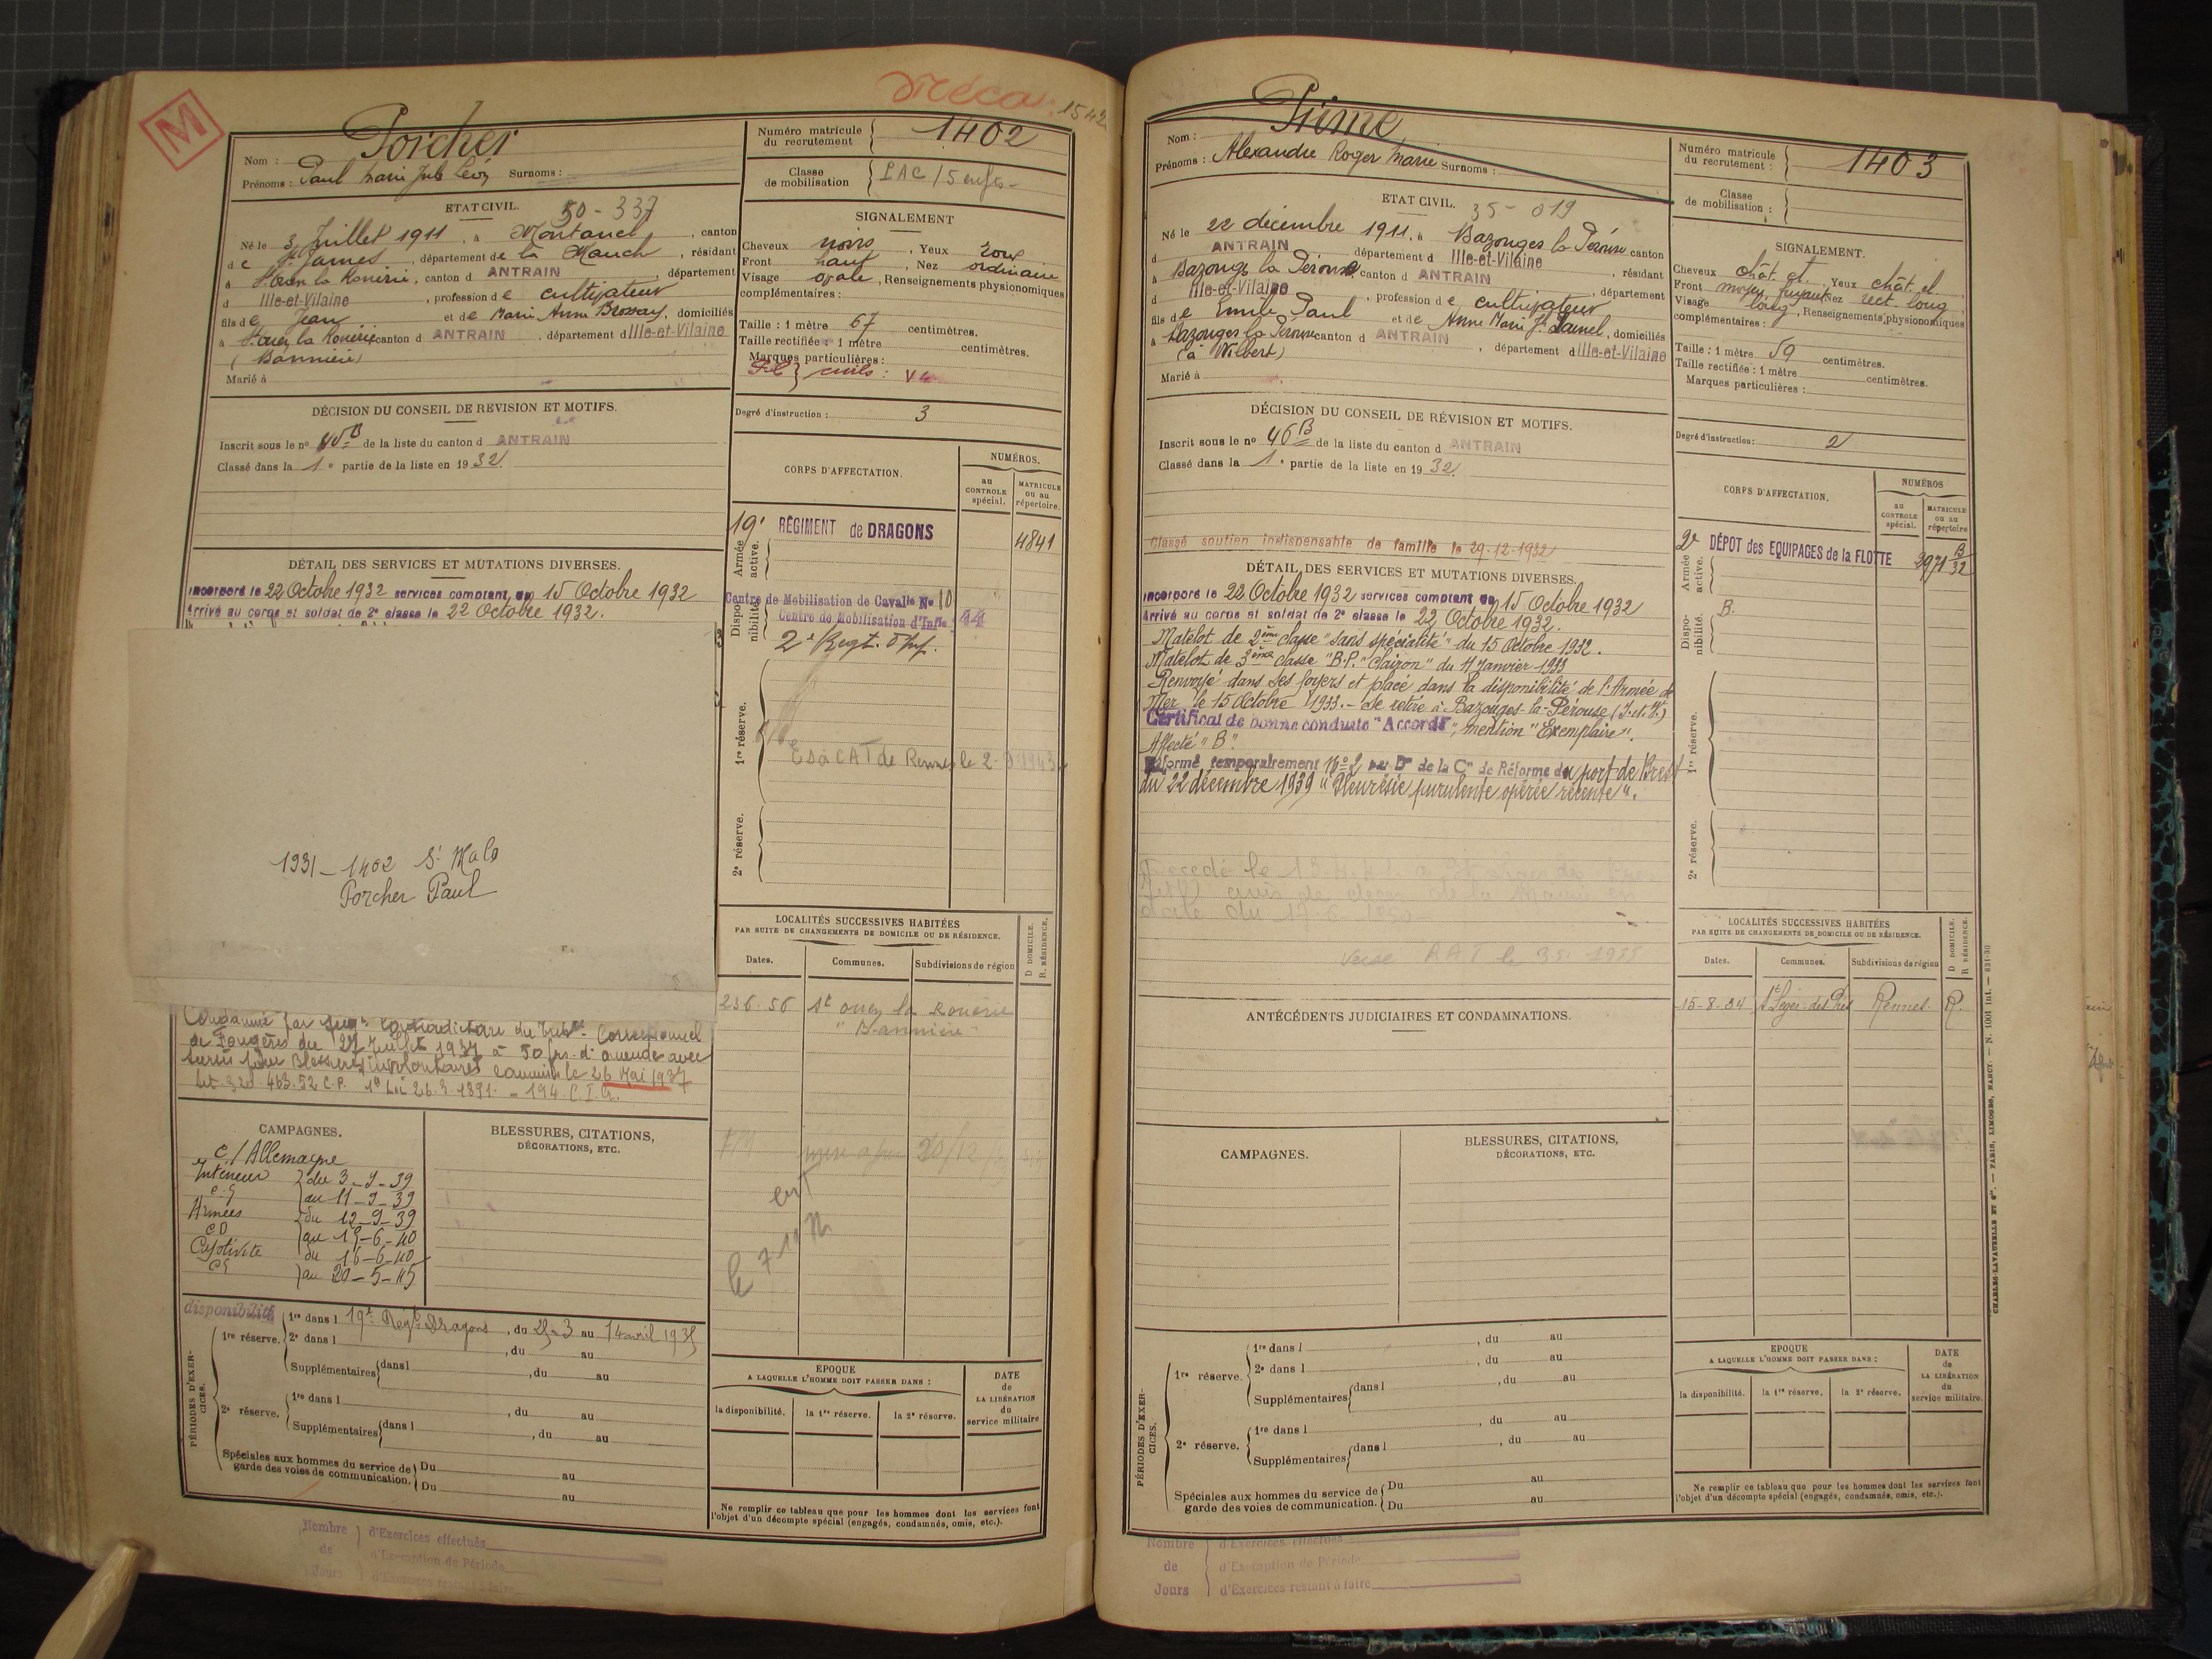 M
Méca
1542
Nom : Porcher
Prénoms : Paul Marie Jules Léon Surnoms :
Numéro matricule du recrutement 1402
Classe de mobilisation PAC / 5 enfts
ETAT CIVIL. 50 - 337
Né le 3 Juillet 1911, à Montanel, canton
de St James, département de la Manche, résidant
à St Ouen la Rouërie, canton d ANTRAIN, département
d Ille-et-Vilaine, profession de cultivateur
fils de Jean et de Marie Anne Brossay, domiciliés
à St Ouen la Rouërie canton d ANTRAIN, département d Ille-et-Vilaine
(Bannière)
Marié à
SIGNALEMENT
Cheveux noirs, Yeux roux
Front haut, Nez ordinaire
Visage ovale, Renseignements physionomiques
complémentaires :
Taille : 1 mètre 67 centimètres.
Taille rectifiée : 1 mètre centimètres.
Marques particulières :
civils :
Degré d'instruction : 3
DÉCISION DU CONSEIL DE REVISION ET MOTIFS.
Inscrit sous le no 45 B de la liste du canton d ANTRAIN
Classé dans la 1e partie de la liste en 1932.
CORPS D'AFFECTATION.
NUMÉROS.
au CONTROLE spécial.
MATRICULE ou au répertoire.
Armée active.
19e RÉGIMENT de DRAGONS 4841
Disponibilité.
Centre de Mobilisation de Cavalie No 10
Centre de Mobilisation d'Infie 44
2e Regt.
1re réserve.
CAT de Rennes le 2-
2e réserve.
DÉTAIL DES SERVICES ET MUTATIONS DIVERSES.
Incorporé le 22 Octobre 1932 services comptant du 15 Octobre 1932
Arrivé au corps et soldat de 2e classe le 22 Octobre 1932.
1931 - 1402 St Malo
Porcher Paul
Condamné par jugt contradictoire du Tribl Correctionnel
de Fougères du 27 Juillet 1937 à 50 frs d'amende avec
sursis pour Blessures involontaires commis le 26 Mai 1937
Art 320. 463. 52 C.P. 1e Loi 26.3.1891. - 194. C.I.Cr.
LOCALITÉS SUCCESSIVES HABITÉES
PAR SUITE DE CHANGEMENTS DE DOMICILE OU DE RÉSIDENCE.
D DOMICILE. R. RÉSIDENCE.
Dates. Communes. Subdivisions de région
23 6. 56 St Ouen la Rouërie
"Bannière"
CAMPAGNES.
c/ Allemagne
Intérieur du 3-9-39
au 11-9-39
Armées du 12-9-39
CD au 15-6-40
Captivité du 16-6-40
au 20-5-45
BLESSURES, CITATIONS,
DÉCORATIONS, ETC.
PÉRIODES D'EXERCICES.
disponibilité
1re réserve. 1re dans l 19e Régt Dragons, du 25-3 au 14 avril 1935
2e dans l, du au
Supplémentaires dans l, du au
2e réserve. 1re dans l, du au
Supplémentaires dans l, du au
Spéciales aux hommes du service de garde des voies de communication. Du au
Du au
EPOQUE
A LAQUELLE L'HOMME DOIT PASSER DANS :
la disponibilité. la 1re réserve. la 2e réserve.
DATE de LA LIBÉRATION du service militaire
Ne remplir ce tableau que pour les hommes dont les services font
l'objet d'un décompte spécial (engagés, condamnés, omis, etc.).
Nombre de Jours
d'Exercices effectués
d'Exemption de Période
d'Exercices restant à faire
Nom : Prime
Prénoms : Alexandre Roger Marie Surnoms :
Numéro matricule du recrutement : 1403
Classe de mobilisation :
ETAT CIVIL. 35 - 019
Né le 22 décembre 1911, à Bazouges la Pérouse canton
d ANTRAIN département d Ille-et-Vilaine, résidant
à Bazouges la Pérouse canton d ANTRAIN, département
d Ille-et-Vilaine, profession de cultivateur
fils de Emile Paul et de Anne Marie, domiciliés
à Bazouges la Pérouse canton d ANTRAIN, département d Ille-et-Vilaine
(à Vilbert)
Marié à
SIGNALEMENT.
Cheveux chât. et. Yeux chât. et.
Front moyen fuyant Nez rect. long
Visage long, Renseignements physionomiques
complémentaires :
Taille : 1 mètre 59 centimètres.
Taille rectifiée : 1 mètre centimètres.
Marques particulières :
Degré d'instruction : 2
DÉCISION DU CONSEIL DE RÉVISION ET MOTIFS.
Inscrit sous le no 46 B de la liste du canton d ANTRAIN
Classé dans la 1e partie de la liste en 1932.
Classé soutien indispensable de famille le 29-12-1932
CORPS D'AFFECTATION.
NUMÉROS
au CONTROLE spécial.
MATRICULE ou au répertoire
Armée active.
2e DÉPOT des EQUIPAGES de la FLOTTE 2971 B 32
Disponibilité.
B.
1re réserve.
2e réserve.
DÉTAIL DES SERVICES ET MUTATIONS DIVERSES.
Incorporé le 22 Octobre 1932 services comptant du 15 Octobre 1932
Arrivé au corps et soldat de 2e classe le 22 Octobre 1932.
Matelot de 2ème classe "sans spécialité" du 15 Octobre 1932.
Matelot de 3ème classe "B.P." Clairon" du 4 Janvier 1933
Renvoyé dans ses foyers et placé dans la disponibilité de l'Armée de
Mer le 15 Octobre 1933. - Se retire à Bazouges-la-Pérouse (I.et.V.)
Certificat de bonne conduite "Accordé", mention "Exemplaire".
Affecté "B".
Réformé temporairement No 2 par Don de la Con de Réforme du port de Brest
du 22 décembre 1939 "Pleurésie purulente opérée récente".
Décédé le 13.4.41 à St Léger des Prés
avis de décès de la Mairie en
date du 17.6.1950
Versé le 3.5.1955
LOCALITÉS SUCCESSIVES HABITÉES
PAR SUITE DE CHANGEMENTS DE DOMICILE OU DE RÉSIDENCE.
D DOMICILE. R RÉSIDENCE.
Dates. Communes. Subdivisions de région
15-8-34 St Léger-des-Prés Rennes R.
ANTÉCÉDENTS JUDICIAIRES ET CONDAMNATIONS.
CAMPAGNES.
BLESSURES, CITATIONS,
DÉCORATIONS, ETC.
PÉRIODES D'EXERCICES.
1re réserve. 1re dans l, du au
2e dans l, du au
Supplémentaires dans l, du au
2e réserve. 1re dans l, du au
Supplémentaires dans l, du au
Spéciales aux hommes du service de garde des voies de communication. Du au
Du au
EPOQUE
A LAQUELLE L'HOMME DOIT PASSER DANS :
la disponibilité. la 1re réserve. la 2e réserve.
DATE de LA LIBÉRATION du service militaire.
Ne remplir ce tableau que pour les hommes dont les services font
l'objet d'un décompte spécial (engagés, condamnés, omis, etc.).
CHARLES-LAVAUZELLE ET Cie. — PARIS, LIMOGES, NANCY. — N. 1001 int. — 831-30
Nombre de Jours
d'Exercices effectués
d'Exemption de Période
d'Exercices restant à faire